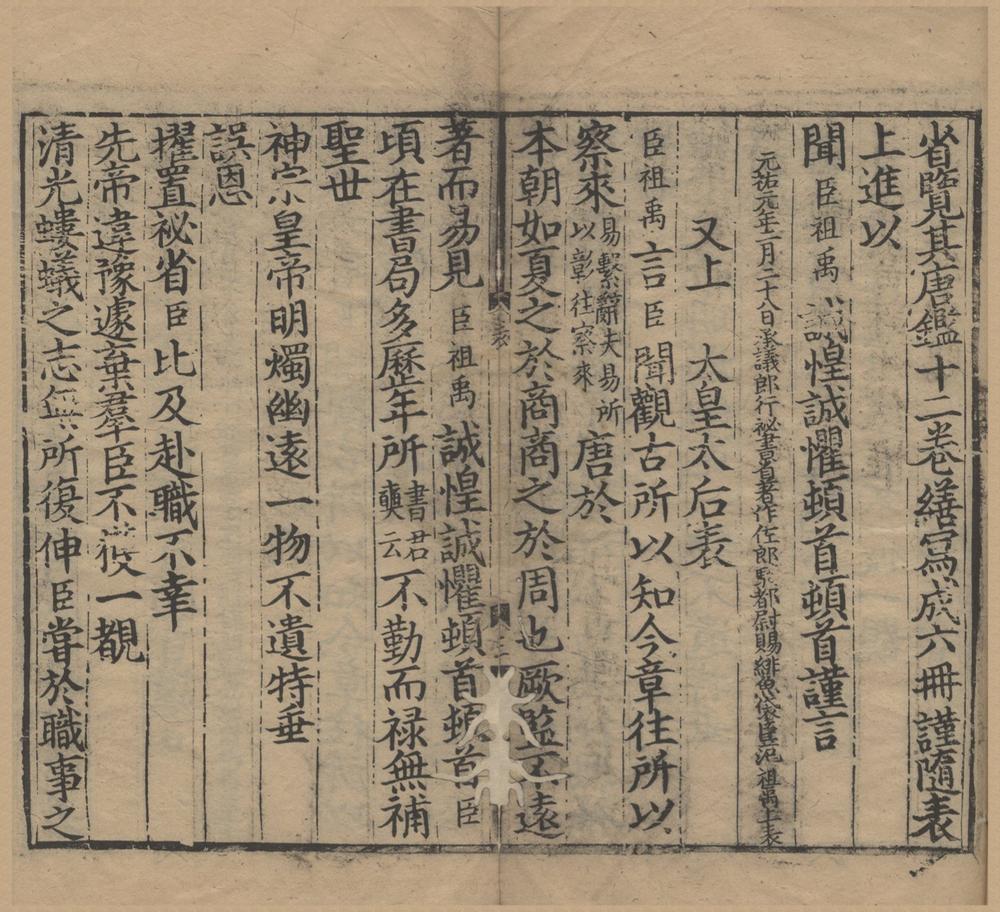 省覽其唐鑑十二卷繕寫成六冊謹隨表
上進以
聞臣祖禹誠惶誠懼頓首頓首謹言
元祐元年二月二十八日承議郎行祕書省著作佐郎騎都尉賜緋魚袋臣范祖禹上表
又上太皇太后表
臣祖禹言臣聞觀古所以知今章往所以
察來易繫辭夫易所以彰往察來唐於
本朝如夏之於商商之於周也厥監不遠
著而易見臣祖禹誠惶誠懼頓首頓首臣
表
頃在書局多歷年所書君奭云不勤而祿無補
聖世
神宗皇帝明燭幽遠一物不遺特垂
誤恩
擢置祕省臣比及赴職不幸
先帝違豫遽棄羣臣不獲一覩
清光螻蟻之志無所復伸臣嘗於職事之